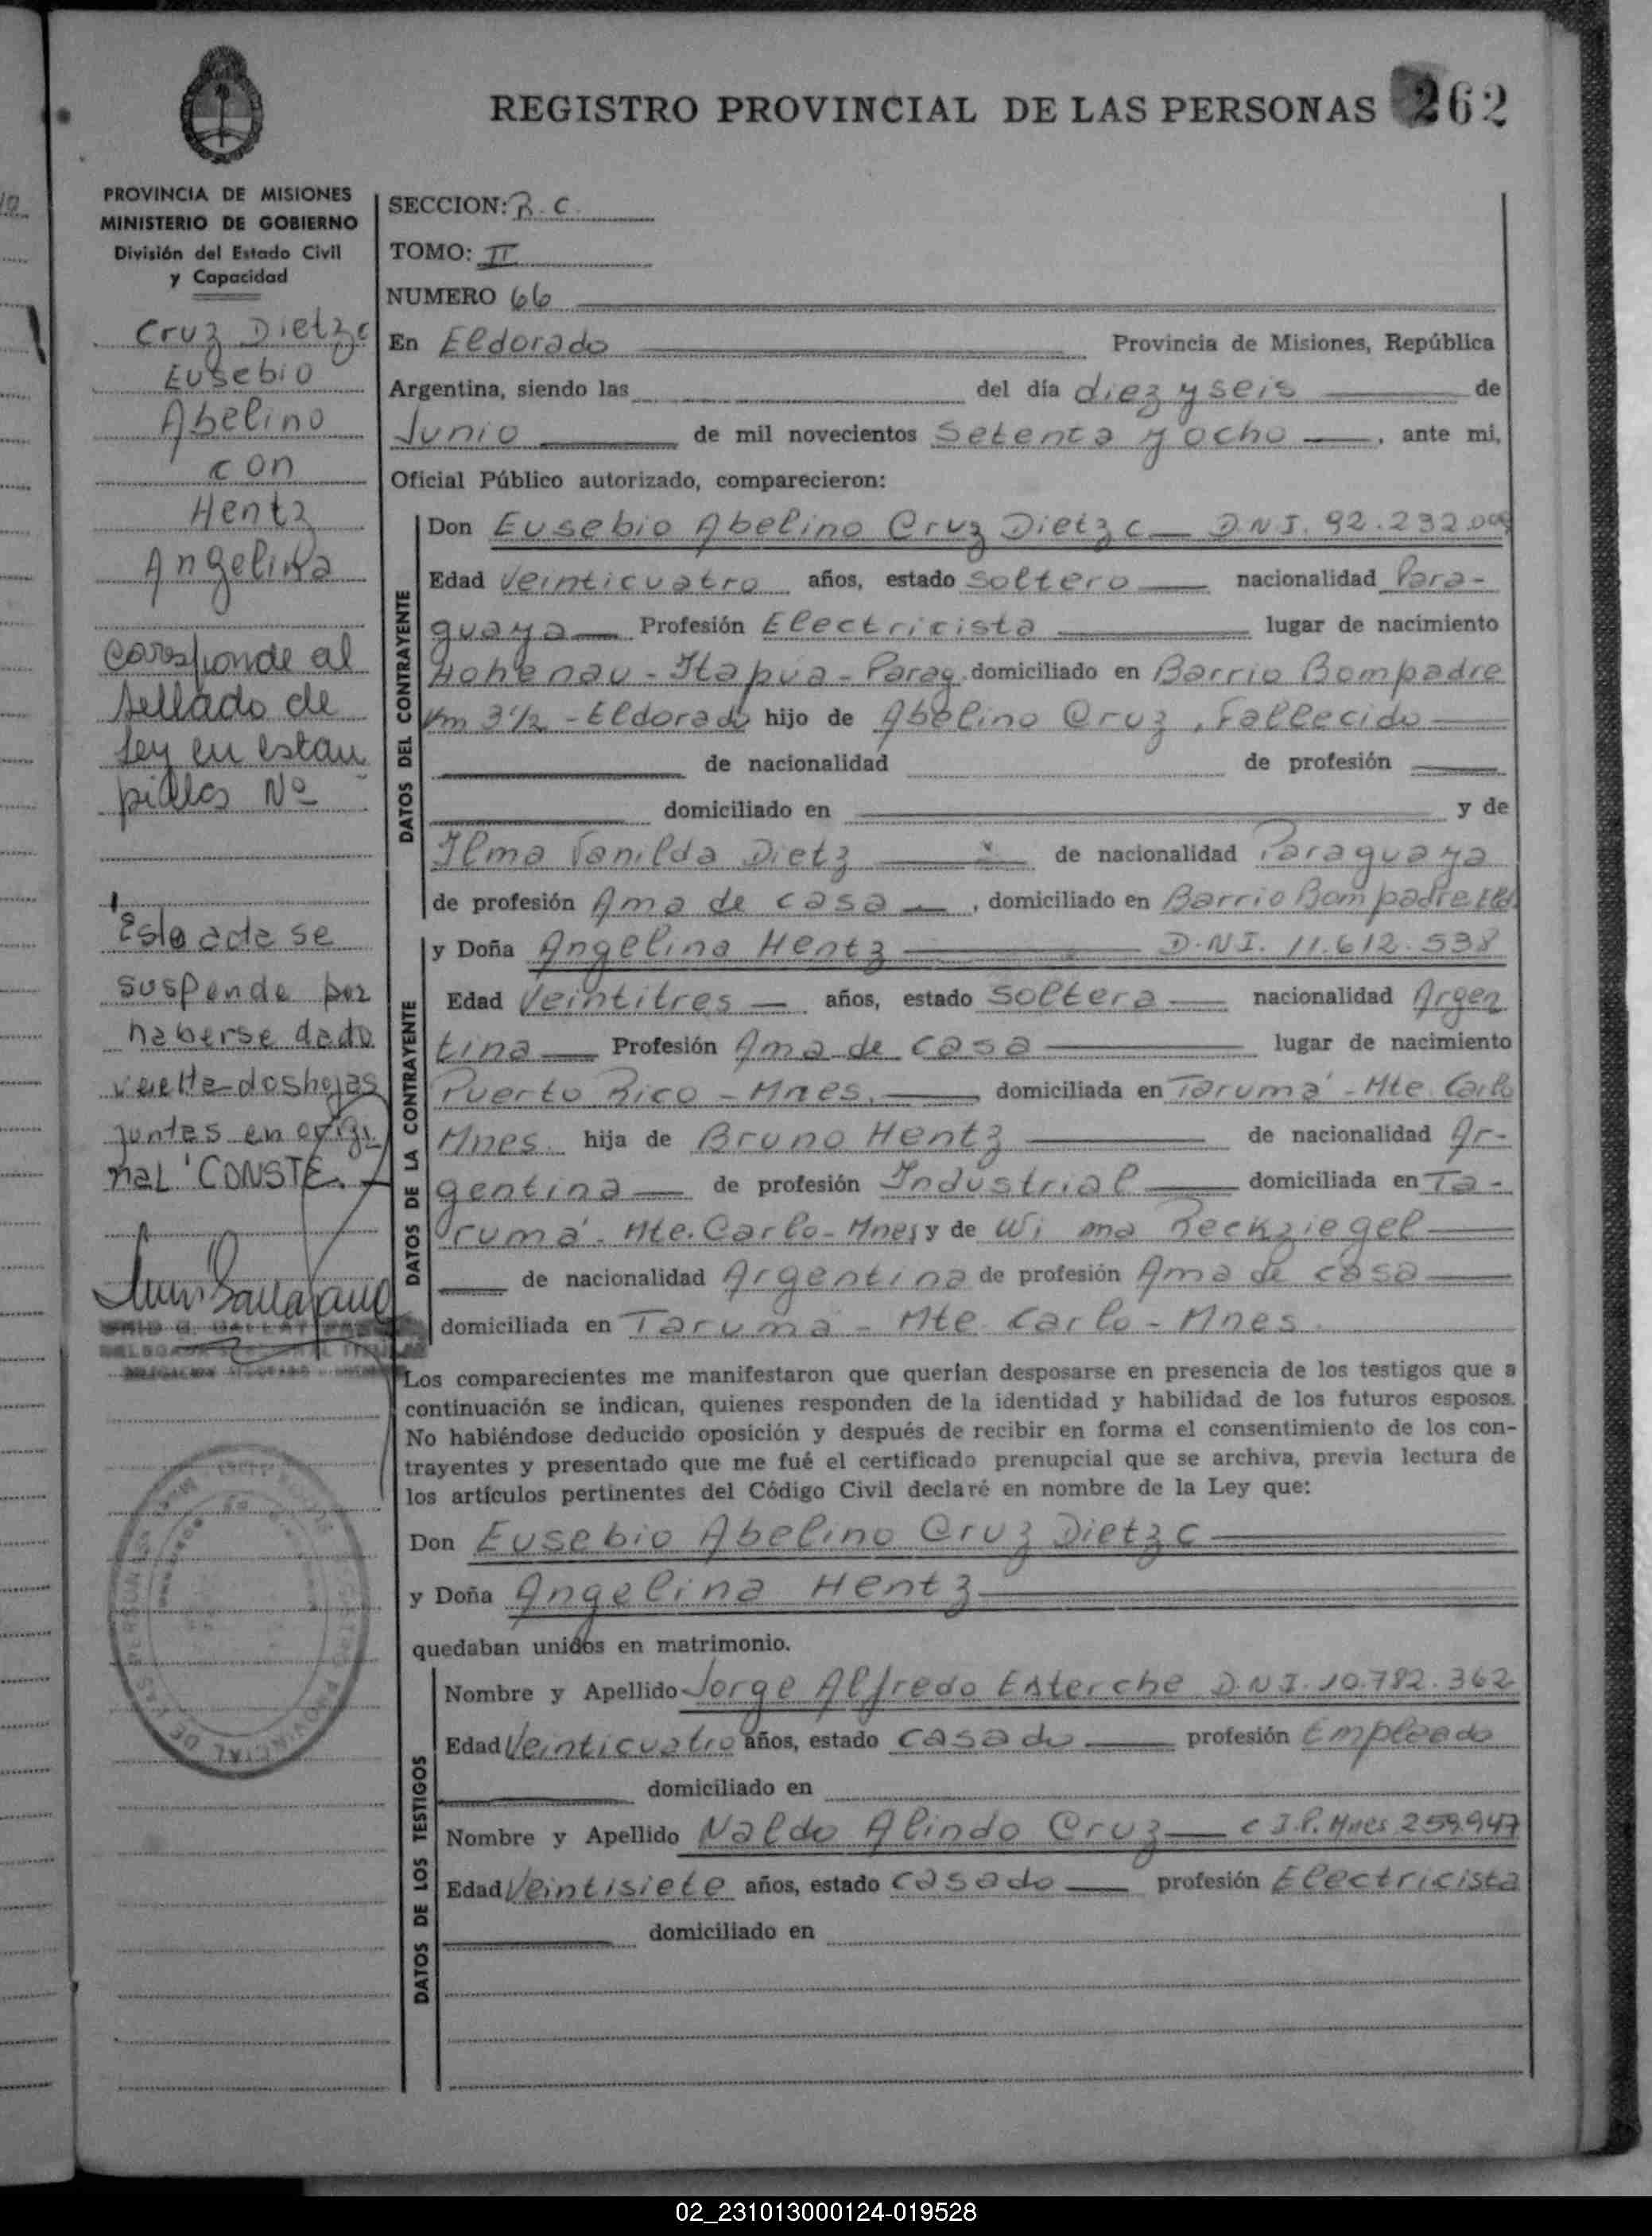 REGISTRO PROVINCIAL DE LAS PERSONAS 262
PROVINCIA DE MISIONES
MINISTERIO DE GOBIERNO
División del Estado Civil
y Capacidad
Cruz Dietze
Eusebio
Abelino
con
Hentz
Angelina
Corresponde al
sellado de
ley en estam
pillas Nº
Esta acta se
suspende por
haberse dado
vuelta dos hojas
juntas en origi
nal CONSTE.
SECCION: R. C.
TOMO: II
NUMERO 66
En Eldorado Provincia de Misiones, República
Argentina, siendo las del día diez y seis de
Junio de mil novecientos Setenta y ocho , ante mi,
Oficial Público autorizado, comparecieron:
DATOS DEL CONTRAYENTE
Don Eusebio Abelino Cruz Dietze D.N.I. 92.232.009
Edad Veinticuatro años, estado Soltero nacionalidad Para-
guaya Profesión Electricista lugar de nacimiento
Hohenau - Itapua - Parag. domiciliado en Barrio Bompadre
Km 3 1/2 - Eldorado hijo de Abelino Cruz, Fallecido
de nacionalidad de profesión
domiciliado en y de
Ilma Vanilda Dietz de nacionalidad Paraguaya
de profesión Ama de casa , domiciliado en Barrio Bompadre Eld.
DATOS DE LA CONTRAYENTE
y Doña Angelina Hentz D.N.I. 11.612.538
Edad Veintitres años, estado Soltera nacionalidad Argen
tina Profesión Ama de casa lugar de nacimiento
Puerto Rico - Mnes. domiciliada en Tarumá - Mte. Carlo
Mnes. hija de Bruno Hentz de nacionalidad Ar-
gentina de profesión Industrial domiciliada en Ta-
rumá - Mte. Carlo - Mnes y de Wi ma Reckziegel
de nacionalidad Argentina de profesión Ama de casa
domiciliada en Taruma - Mte. Carlo - Mnes.
Los comparecientes me manifestaron que querían desposarse en presencia de los testigos que a
continuación se indican, quienes responden de la identidad y habilidad de los futuros esposos.
No habiéndose deducido oposición y después de recibir en forma el consentimiento de los con-
trayentes y presentado que me fué el certificado prenupcial que se archiva, previa lectura de
los artículos pertinentes del Código Civil declaré en nombre de la Ley que:
Don Eusebio Abelino Cruz Dietze
y Doña Angelina Hentz
quedaban unidos en matrimonio.
DATOS DE LOS TESTIGOS
Nombre y Apellido Jorge Alfredo Esterche D.N.I. 10.782.362
Edad Veinticuatro años, estado casado profesión Empleado
domiciliado en
Nombre y Apellido Naldo Alindo Cruz C.I.P. Mnes 259.947
Edad Veintisiete años, estado casado profesión Electricista
domiciliado en
02_231013000124-019528